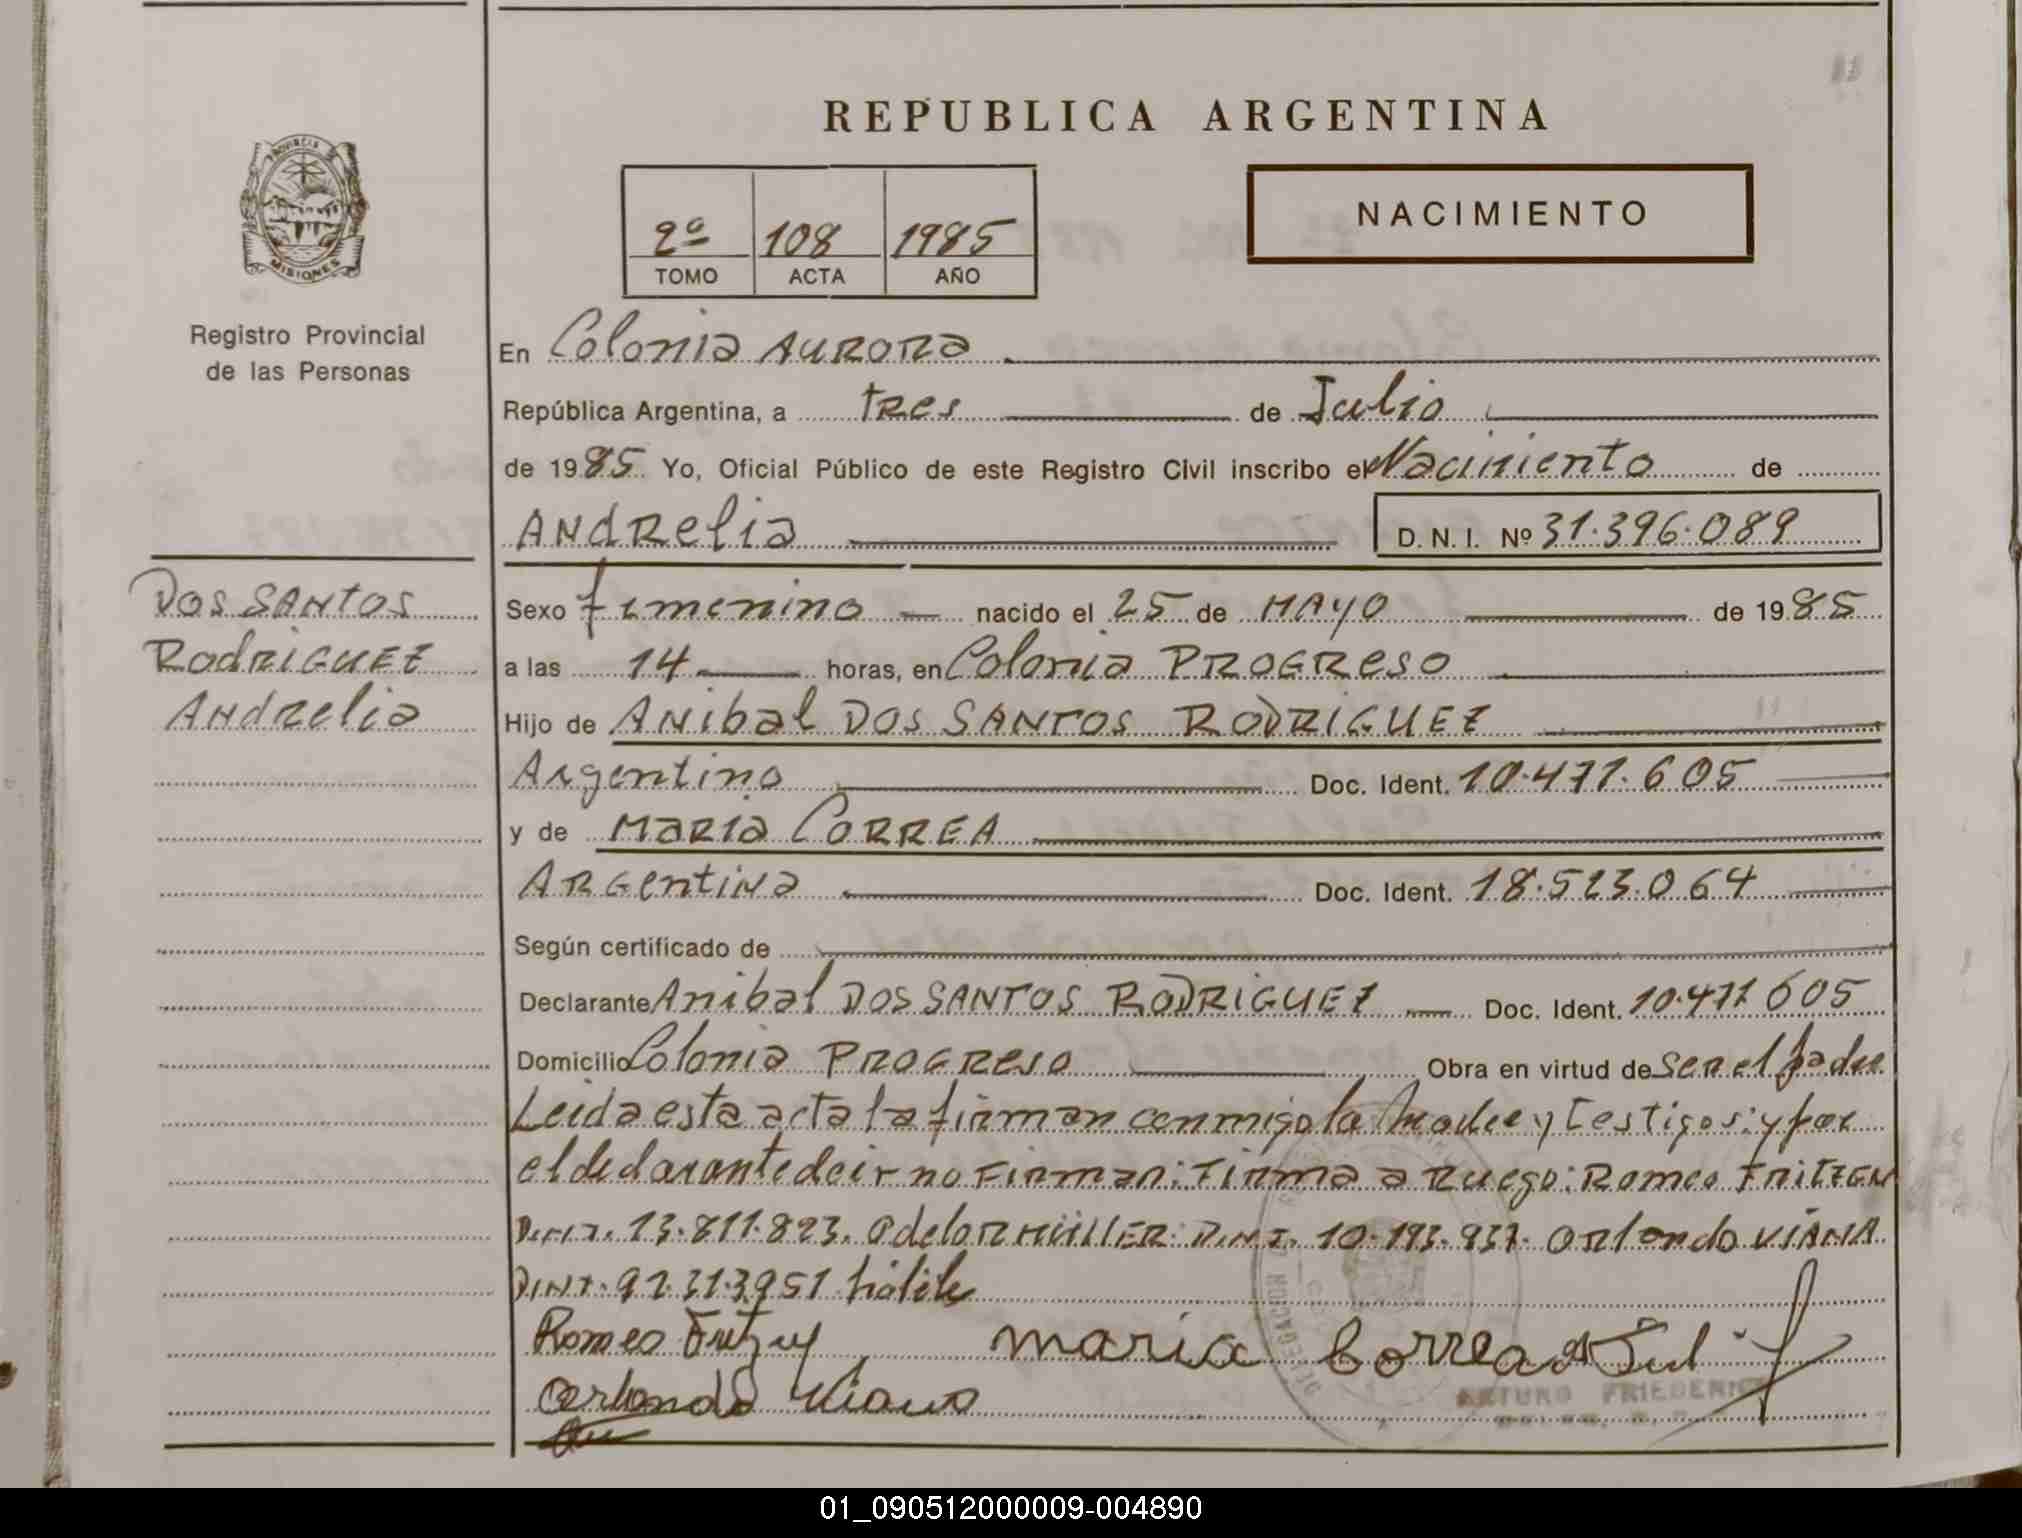 REPUBLICA ARGENTINA
PROVINCIA DE
MISIONES
Registro Provincial
de las Personas
2º 108 1985
TOMO ACTA AÑO
NACIMIENTO
En Colonia Aurora
República Argentina, a tres de Julio
de 1985 Yo, Oficial Público de este Registro Civil inscribo el Nacimiento de
Andrelia D. N. I. Nº 31.396.089
Dos Santos
Rodriguez
Andrelia
Sexo femenino nacido el 25 de Mayo de 1985
a las 14 horas, en Colonia Progreso
Hijo de Anibal Dos Santos Rodriguez
Argentino Doc. Ident. 10.471.605
y de Maria Correa
Argentina Doc. Ident. 18.523.064
Según certificado de
Declarante Anibal Dos Santos Rodriguez Doc. Ident. 10.471.605
Domicilio Colonia Progreso Obra en virtud de ser el padre
Leida esta acta la firman conmigo la madre y testigos: y por
el declarante decir no firmar: Firma a Ruego: Romeo Fritzen
D.N.I. 13.811.823. Odelor Müller: D.N.I. 10.193.937. Orlando Viana
D.N.I. 92.313.951
Romeo
maria Correa
Orlando Viana
ARTURO FRIEDERICH
01_090512000009-004890